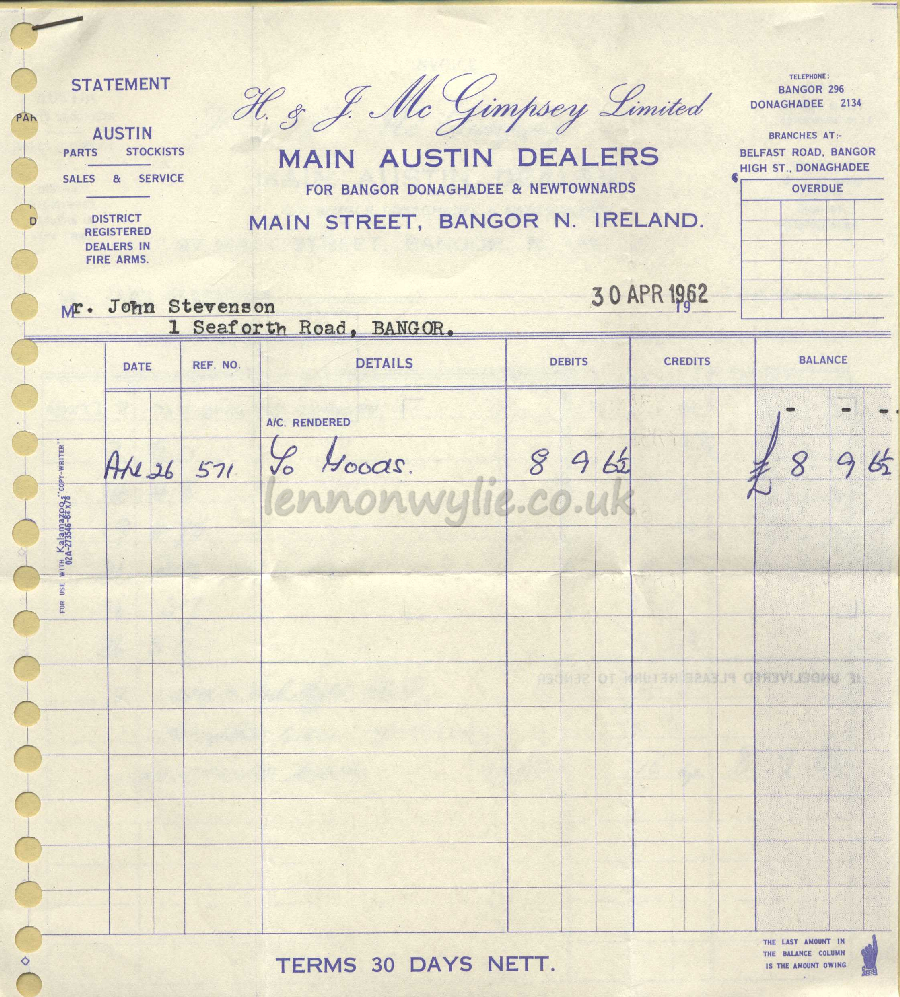 STATEMENT
AUSTIN
PARTS STOCKISTS
SALES & SERVICE
DISTRICT
REGISTERED
DEALERS IN
FIRE ARMS.
H. & J. Mc Gimpsey Limited
MAIN AUSTIN DEALERS
FOR BANGOR DONAGHADEE & NEWTOWNARDS
MAIN STREET, BANGOR N. IRELAND.
TELEPHONE:
BANGOR 296
DONAGHADEE 2134
BRANCHES AT:-
BELFAST ROAD, BANGOR
HIGH ST., DONAGHADEE
OVERDUE
PAR
D
Mr. John Stevenson
1 Seaforth Road, BANGOR.
30 APR 1962
19
DATE REF. NO. DETAILS DEBITS CREDITS BALANCE
A/C. RENDERED - - -.
26 571 To Goods. 8 9 6½ £ 8 9 6½
lennonwylie.co.uk
FOR USE WITH Kalamazoo "COPY-WRITER"
IF UNDELIVERED PLEASE RETURN TO SENDER
TERMS 30 DAYS NETT.
THE LAST AMOUNT IN
THE BALANCE COLUMN
IS THE AMOUNT OWING